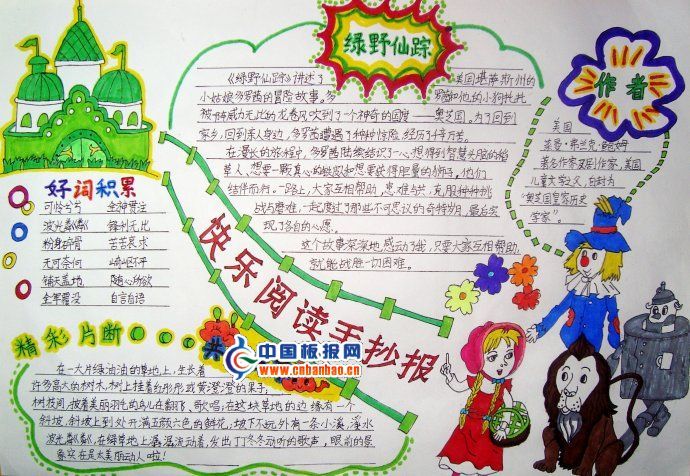 绿野仙踪
《绿野仙踪》讲述了 美国堪萨斯州的
小姑娘多罗茜的冒险故事。多 罗茜和他的小狗托托
被一阵威力无比的龙卷风吹到了一个神奇的国度——奥芝国。为了回到
家乡,回到亲人身边,多罗茜遭遇了种种惊险,经历了千辛万苦。
在漫长的旅程中,多罗茜陆续结识了一心想得到智慧头脑的稻
草人,想要一颗真心的铁皮人和想要获得胆量的狮子。他们
结伴而行。一路上,大家互相帮助,患难与共,克服种种挑
战与磨难,一起度过了那些不可思议的奇特岁月,最后实
现了各自的心愿。
这个故事深深地感动了我,只要大家互相帮助,
就能战胜一切困难。
作者
美国
莱曼·弗兰克·鲍姆
著名作家及剧作家,美国
儿童文学之父,它封为
“奥芝国皇家历史
学家”。
好词积累
可怜兮兮 全神贯注
波光粼粼 锋利无比
粉身碎骨 苦苦哀求
无可奈何 崎岖不平
铺天盖地 随心所欲
全军覆没 自言自语
快乐阅读手抄报
精彩片断
共
中国板报网
www.cnbanbao.cn
在一大片绿油油的草地上,生长着
许多高大的树木,树上挂着红彤彤或黄澄澄的果子;
树枝间,披着美丽羽毛的鸟儿在翻飞、歌唱;在这块草地的边缘有一个
斜坡,斜坡上到处开满五颜六色的鲜花,坡下不远外有一条小溪,溪水
波光粼粼,在绿草地上潺潺流动着,发出丁冬冬动听的歌声,眼前的景
象实在是太美丽动人啦!